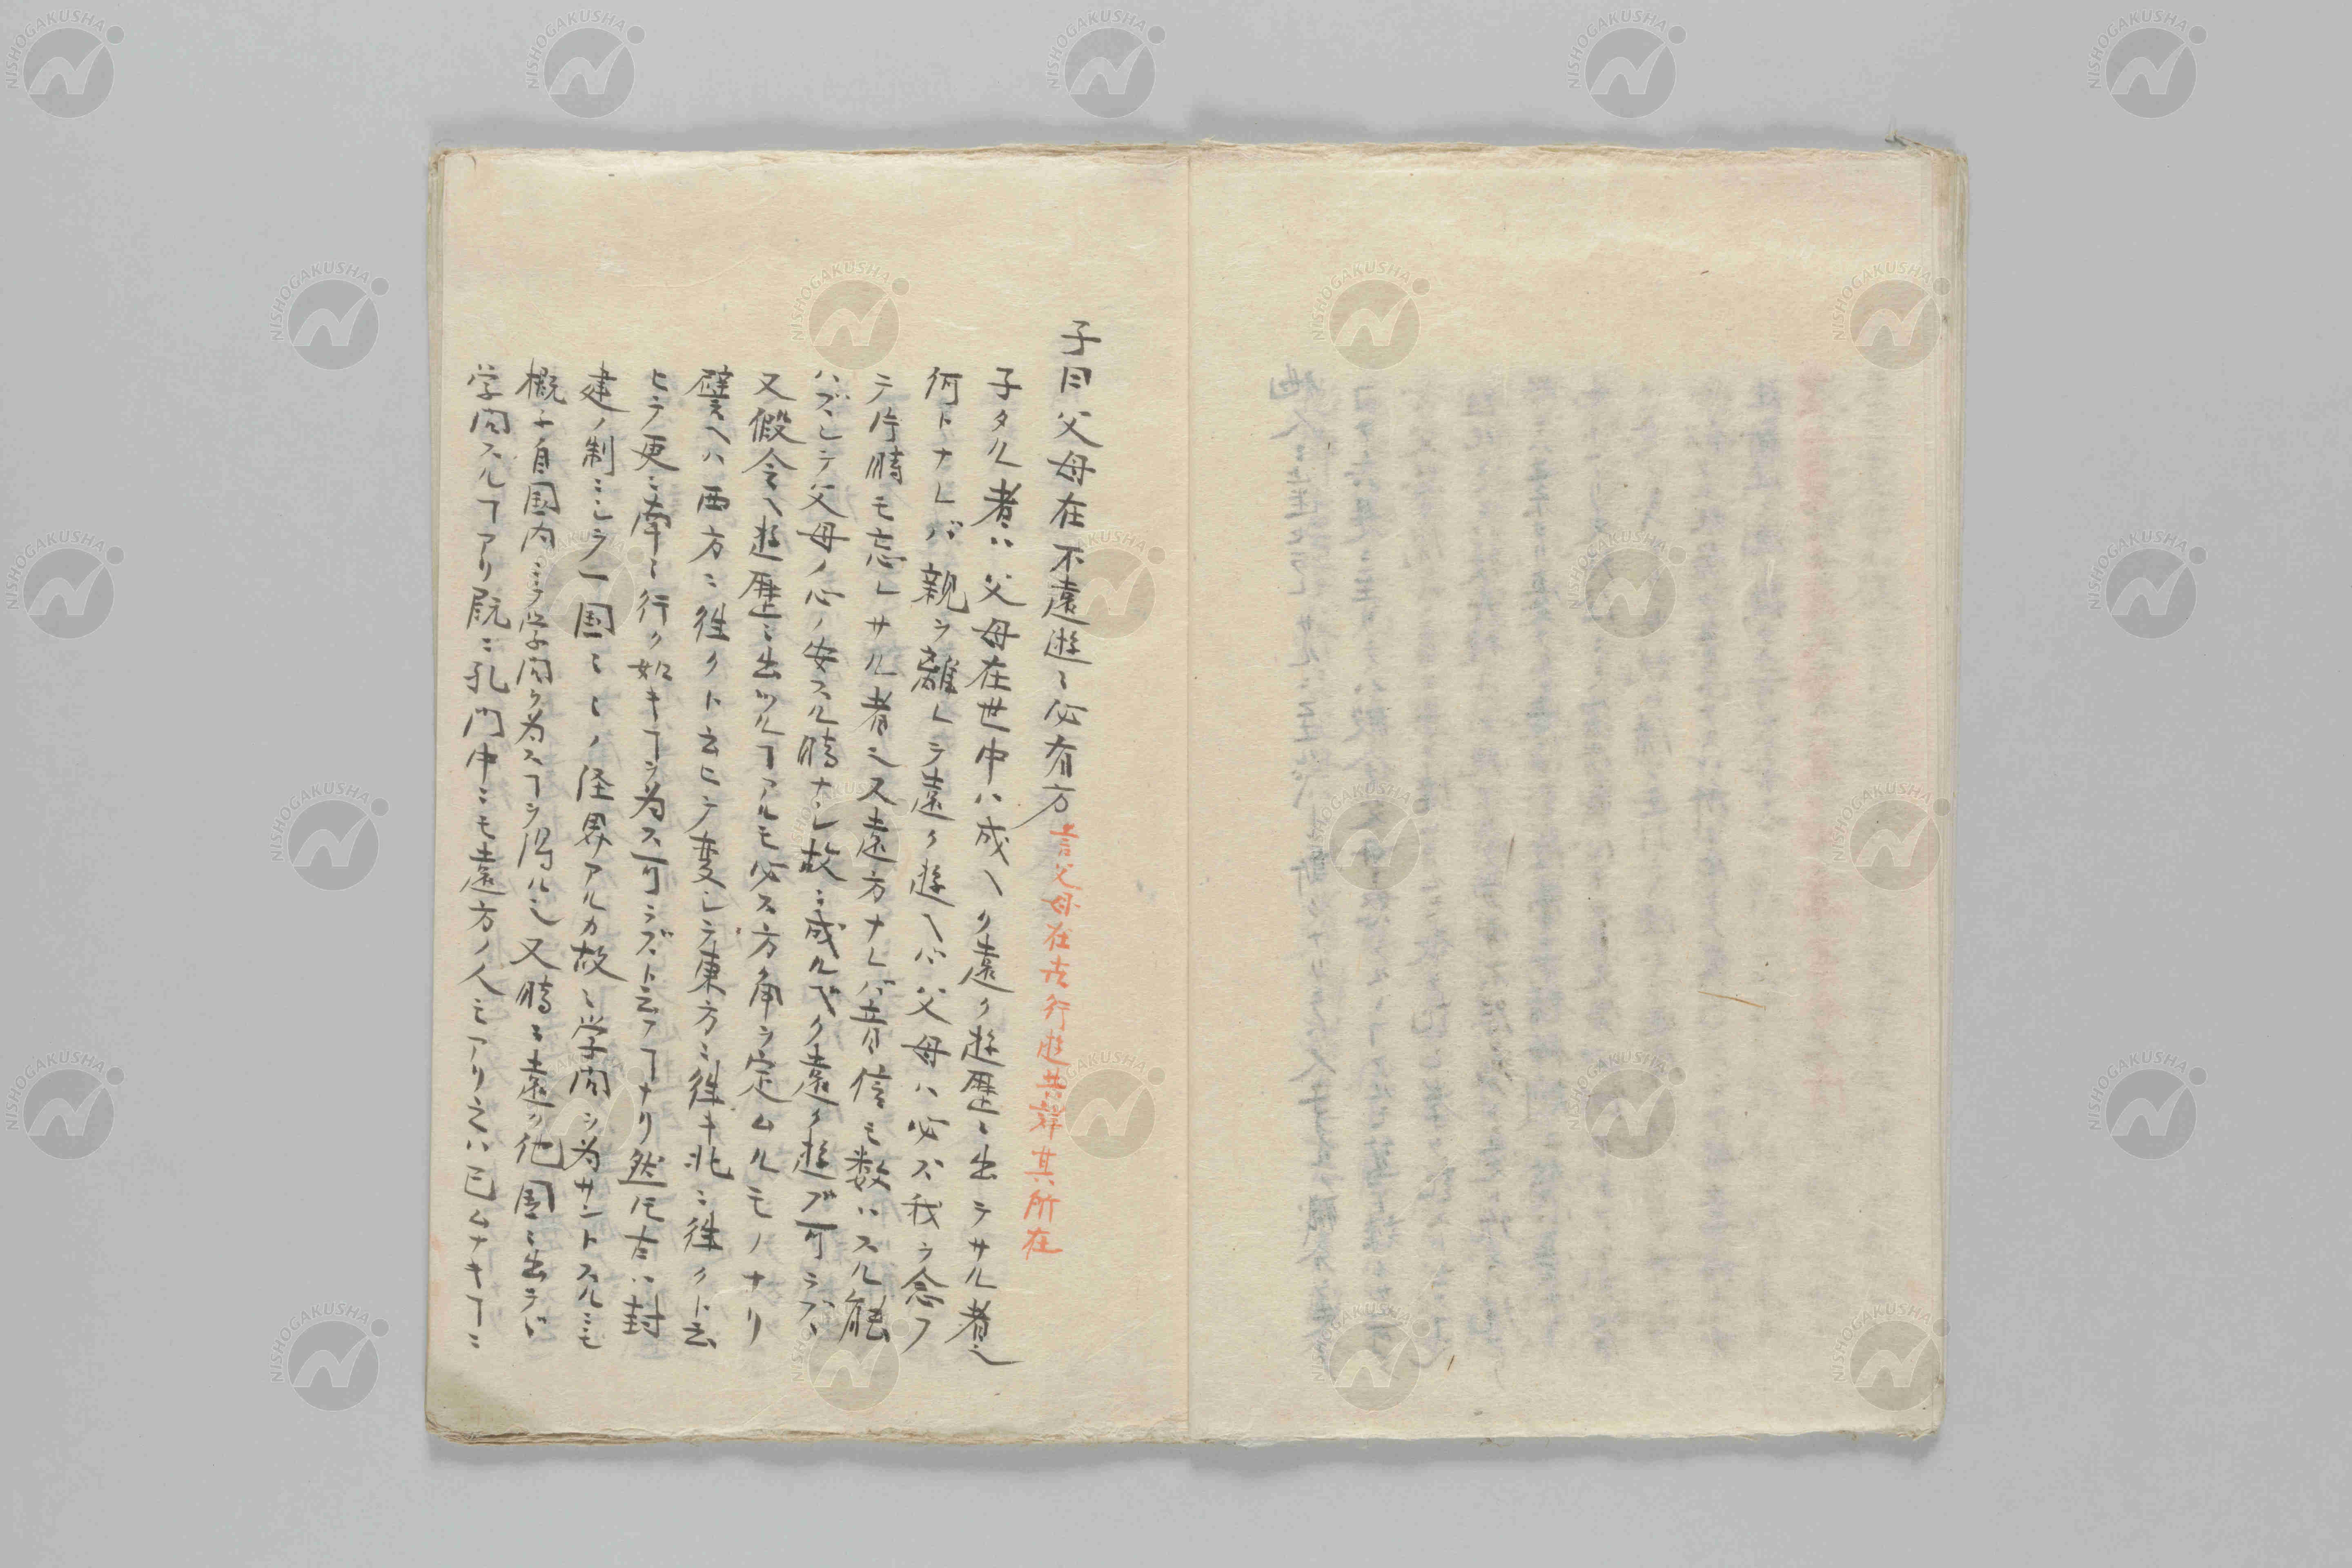 子曰父母在不遠遊〻必有方言父母在世行遊共詳其所在
子タル者ハ父母在世中ハ成ヘク遠ク遊歴ニ出ラサル者也
何トナレバ親ヲ離レテ遠ク遊ヘハ父母ハ必ス我ヲ念フ
テ片時モ忘レサル者也又遠方ナレバ音信モ数ハスル能
ハズシテ父母ノ心ノ安スル時ナシ故ニ成ルベク遠ク遊ブ可ラズ
又假令ヘ遊歴ニ出ツルヿアルモ必ス方角ヲ定ムルモノナリ
譬ヘハ西方ニ徃クト云ヒテ変シテ東方ニ徃キ北ニ徃クト云
ヒテ更ニ南ニ行ク如キヿヲ為ス可ラズト云フヿナリ然𪜈古ハ封
建ノ制ニシテ一国〻〻ノ経界アルカ故ニ学問ヲ為サントスルニモ
概子自国内ニテ学問ヲ為スヿヲ得ル也又時ニ遠ク他国ニ出テ
学問スルヿアリ既ニ孔門中ニモ遠方ノ人モアリ之ハ已ムナキヿニ
NISHOGAKUSHA